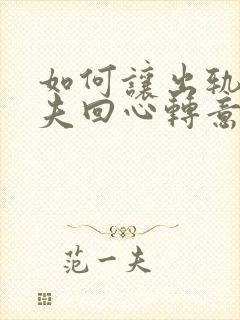 如何讓出軌
夫回心轉意
范一夫